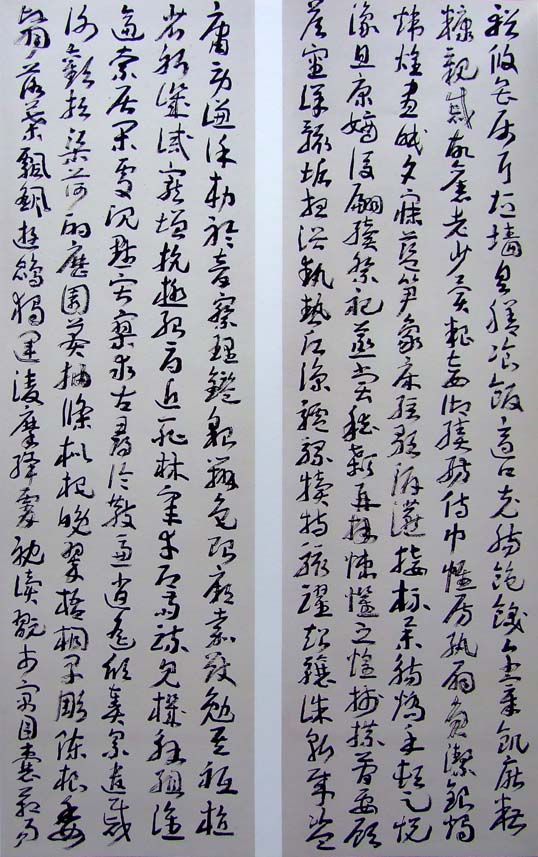 庸勞謙謹敕聆音察理鑑貌辨色貽厥嘉猷勉其祗植
省躬譏誡寵增抗極殆辱近恥林皋幸即兩疏見機解組誰
逼索居閑處沉默寂寥求古尋論散慮逍遙欣奏累遣慼
謝歡招渠荷的歷園莽抽條枇杷晚翠梧桐早彫陳根委
翳落葉飄颻遊鵾獨運淩摩絳霄耽讀翫市寓目囊箱易
輶攸畏屬耳垣墻具膳飡飯適口充腸飽飫烹宰飢厭糟
糠親戚故舊老少異糧妾御績紡侍巾帷房紈扇員潔銀燭
煒煌晝眠夕寐藍筍象床弦歌酒讌接杯舉觴矯手頓足悅
豫且康嫡後嗣續祭祀蒸嘗稽顙再拜悚懼恐惶牋牒簡要顧
答審詳骸垢想浴執熱願涼驢騾犢特駭躍超驤誅斬賊盜